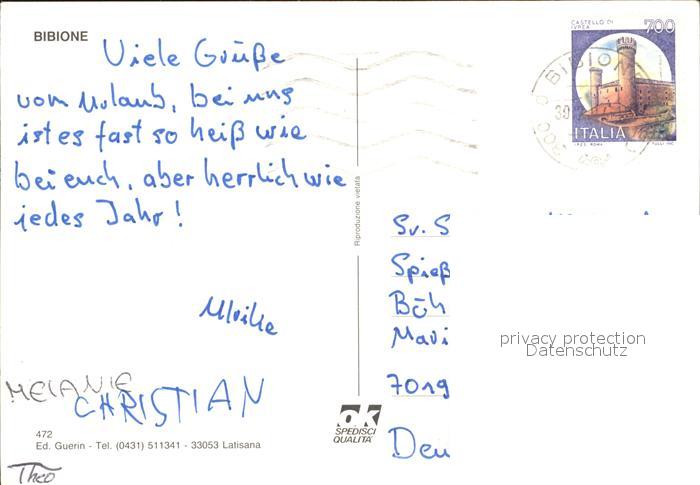 BIBIONE
Viele Grüße
vom Urlaub, bei uns
ist es fast so heiß wie
bei euch, aber herrlich wie
jedes Jahr!
Ulrike
MELANIE
CHRISTIAN
472
Ed. Guerin - Tel. (0431) 511341 - 33053 Latisana
Theo
Riproduzione vietata
ok
SPEDISCI
QUALITA'
CASTELLO DI
IVREA
700
ITALIA
I.P.Z.S. ROMA
BIBIONE
30
Spieß
Böh
7019
privacy protection
Datenschutz